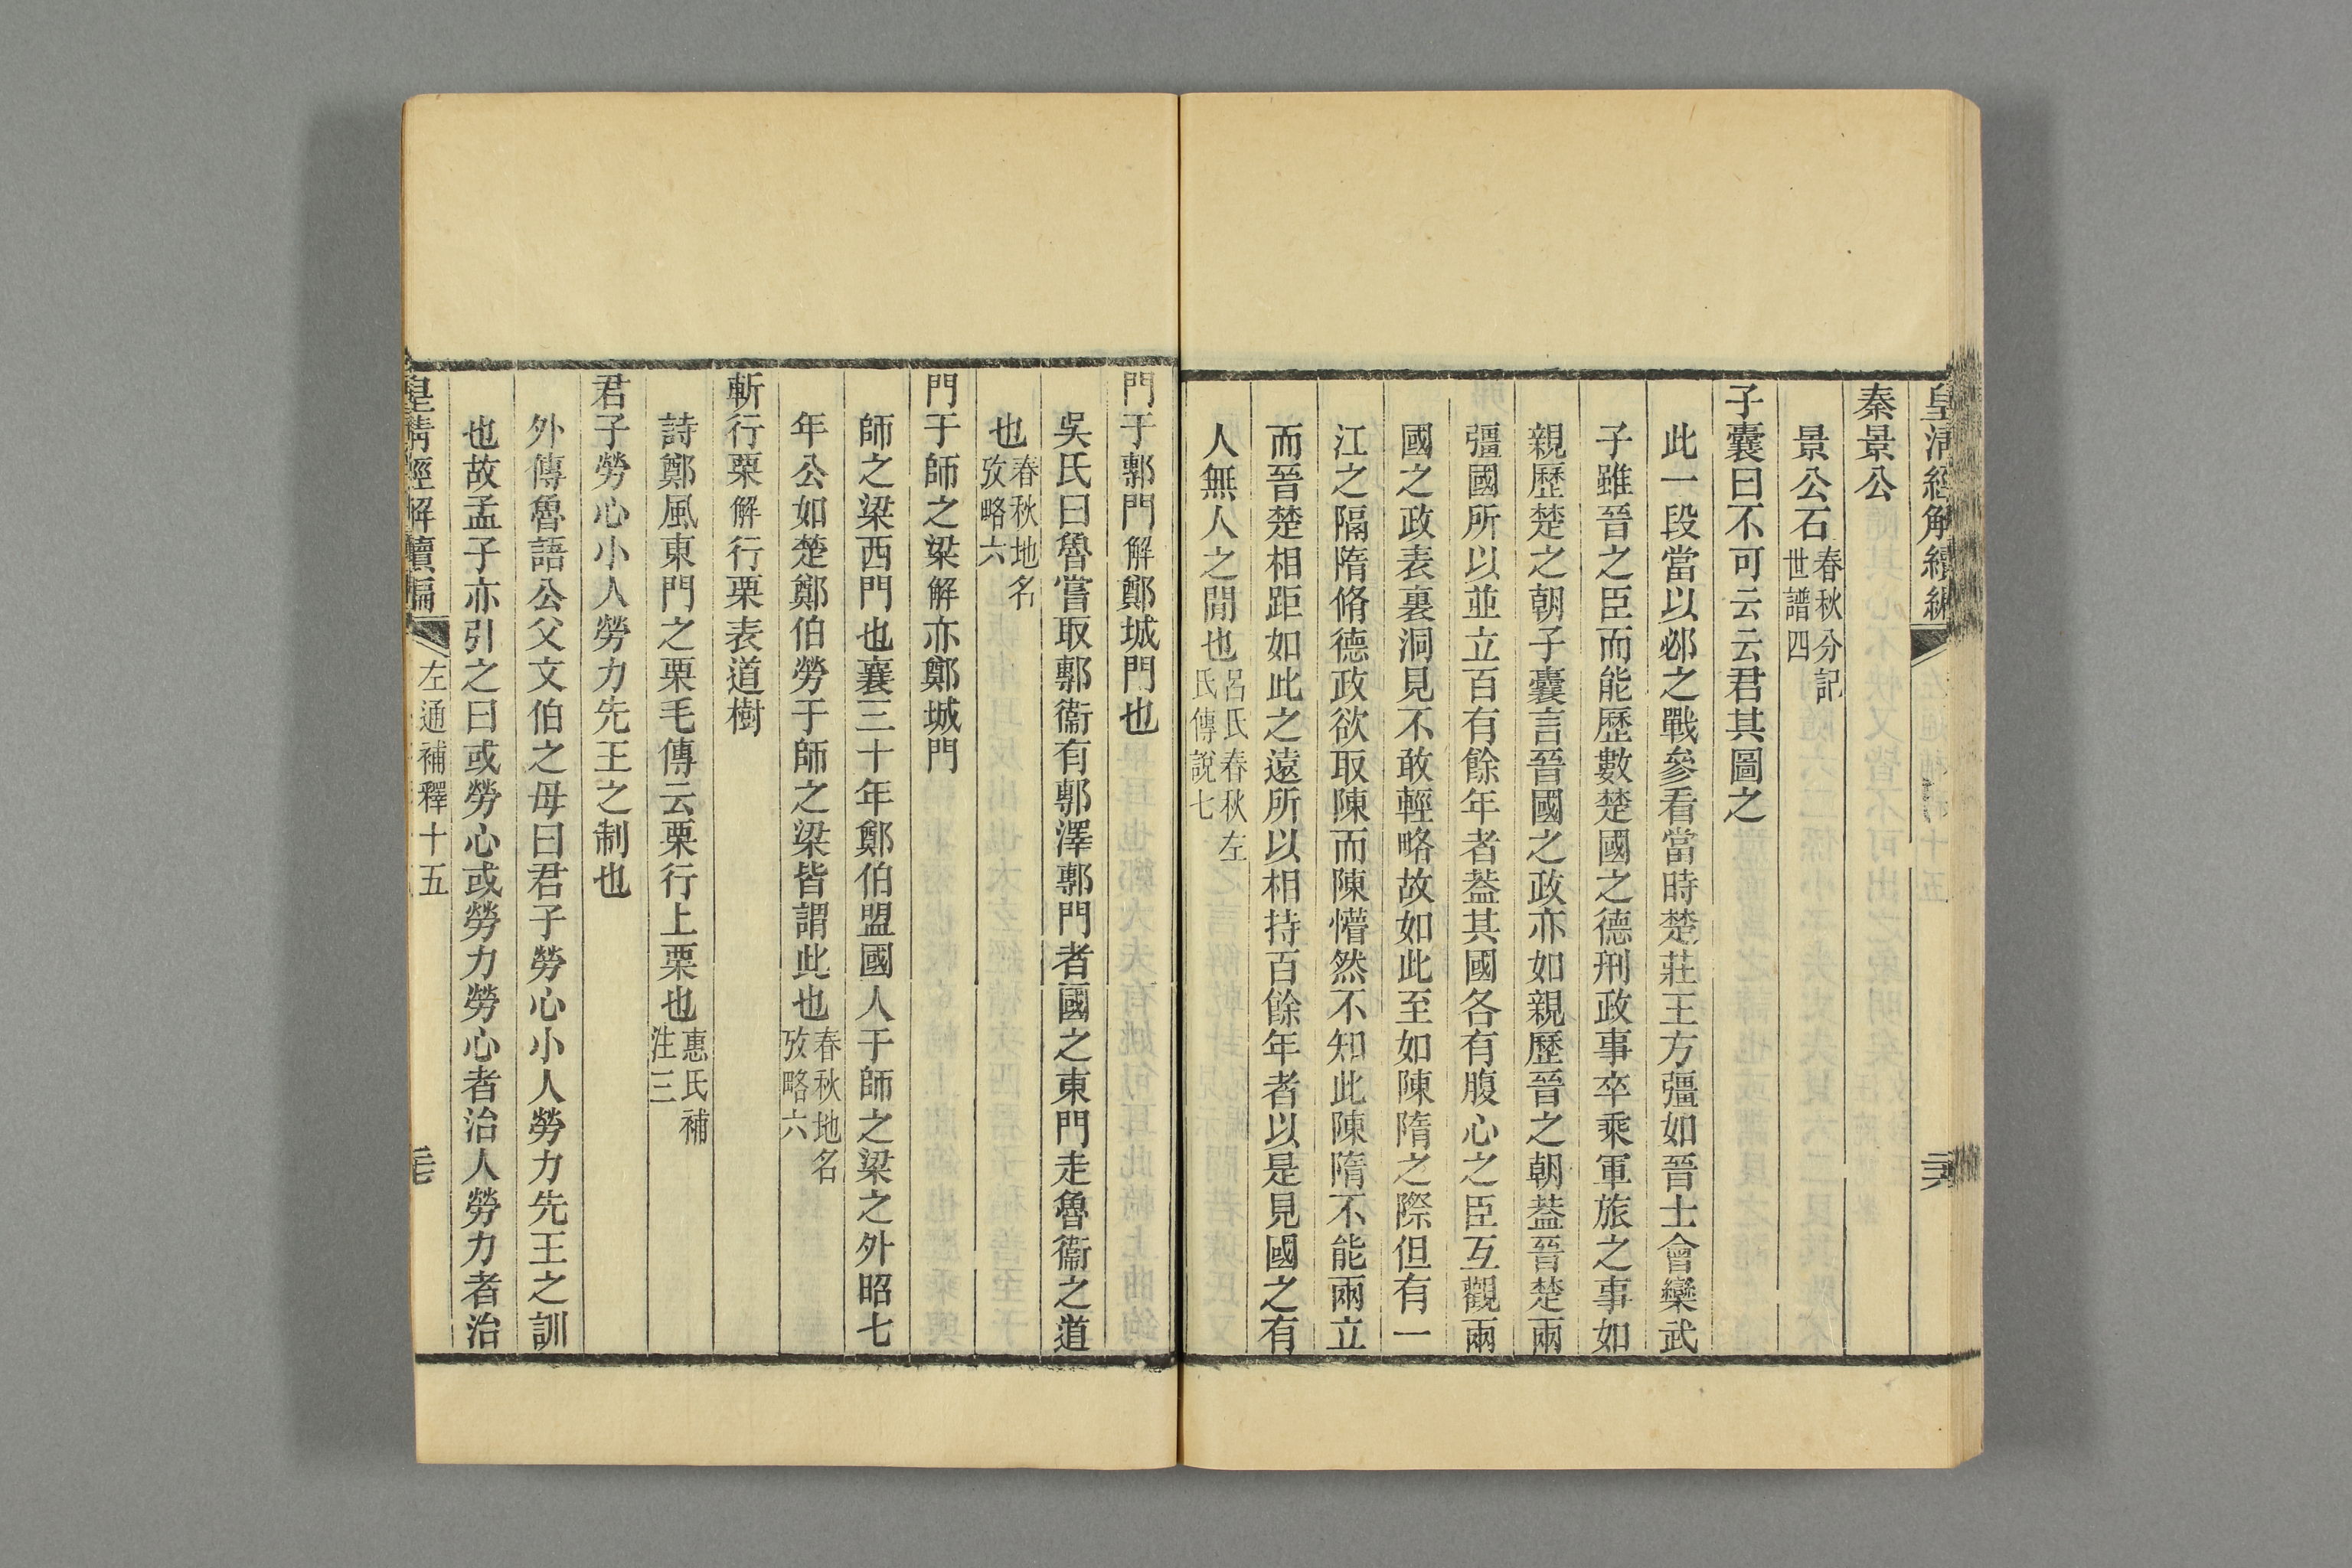 皇清經解續編
秦景公
景公石春秋分記
世譜四
子囊曰不可云云君其圖之
此一段當以邲之戰參看當時楚莊王方彊如晉士會欒武
子雖晉之臣而能歷數楚國之德刑政事卒乘軍旅之事如
親歷楚之朝子囊言晉國之政亦如親歷晉之朝葢晉楚兩
彊國所以並立百有餘年者葢其國各有腹心之臣互觀兩
國之政表裏洞見不敢輕略故如此至如陳隋之際但有一
江之隔隋脩德政欲取陳而陳懵然不知此陳隋不能兩立
而晉楚相距如此之遠所以相持百餘年者以是見國之有
人無人之閒也呂氏春秋左
氏傳說七
門于鄟門解鄭城門也
吳氏曰魯嘗取鄟衞有鄟澤鄟門者國之東門走魯衞之道
也春秋地名
攷略六
門于師之梁解亦鄭城門
師之梁西門也襄三十年鄭伯盟國人于師之梁之外昭七
年公如楚鄭伯勞于師之梁皆謂此也春秋地名
攷略六
斬行栗解行栗表道樹
詩鄭風東門之栗毛傳云栗行上栗也惠氏補
注三
君子勞心小人勞力先王之制也
外傳魯語公父文伯之母曰君子勞心小人勞力先王之訓
也故孟子亦引之曰或勞心或勞力勞心者治人勞力者治
皇清經解續編
左通補釋十五